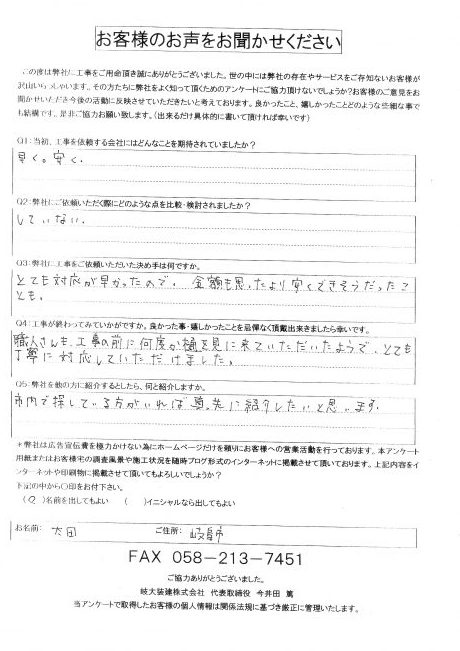 お客様のお声をお聞かせください
この度は弊社に工事をご用命頂き誠にありがとうございました。世の中には弊社の存在やサービスをご存知ないお客様が
沢山いらっしゃいます。その方たちに弊社をよく知って頂くためのアンケートにご協力頂けないでしょうか？お客様のご意見をお
聞かせいただき今後の活動に反映させていただきたいと考えております。良かったこと、嬉しかったことどのような些細な事で
も結構です。是非ご協力お願い致します。（出来るだけ具体的に書いて頂ければ幸いです）
Q1：当初、工事を依頼する会社にはどんなことを期待されていましたか？
早く。安く.
Q2：弊社にご依頼いただく際にどのような点を比較・検討されましたか？
していない.
Q3：弊社に工事をご依頼いただいた決め手は何ですか。
とても対応が早かったので。金額も思ったより安くできそうだったこ
とも.
Q4：工事が終わってみていかがですか。良かった事・嬉しかったことを忌憚なく頂戴出来きましたら幸いです。
職人さんも、工事の前に何度か樋を見に来ていただいたようで、とても
丁寧に対応していただけました。
Q5：弊社を他の方に紹介するとしたら、何と紹介しますか。
市内で探している方がいれば 真先に紹介したいと思います.
＊弊社は広告宣伝費を極力かけない為にホームページだけを頼りにお客様への営業活動を行っております。本アンケート
用紙またはお客様宅の調査風景や施工状況を随時ブログ形式のインターネットに掲載させて頂いております。上記内容をイ
ンターネットや印刷物に掲載させて頂いてもよろしいでしょうか？
下記の中から〇印をお付下さい。
（〇）名前を出してもよい （ ）イニシャルなら出してもよい
お名前： 太田 ご住所： 岐阜市
FAX 058－213－7451
ご協力ありがとうございました。
岐大装建株式会社 代表取締役 今井田 篤
当アンケートで取得したお客様の個人情報は関係法規に基づき厳正に管理いたします。